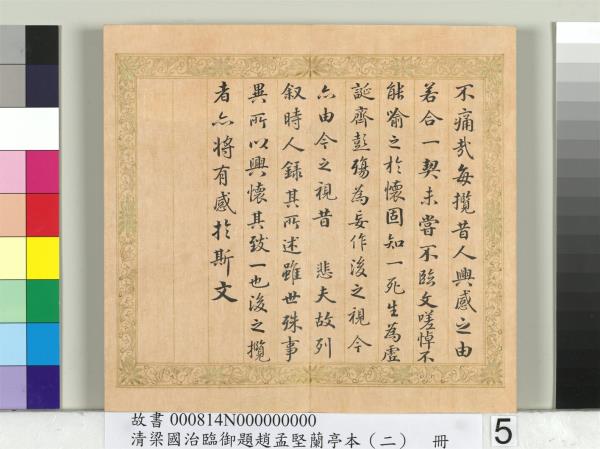 不痛哉每攬昔人興感之由
若合一契未嘗不臨文嗟悼不
能喻之於懷固知一死生為虛
誕齊彭殤為妄作後之視今
亦由今之視昔 悲夫故列
叙時人錄其所述雖世殊事
異所以興懷其致一也後之攬
者亦將有感於斯文
故書 000814N000000000
清梁國治臨御題趙孟堅蘭亭本（二） 冊
5